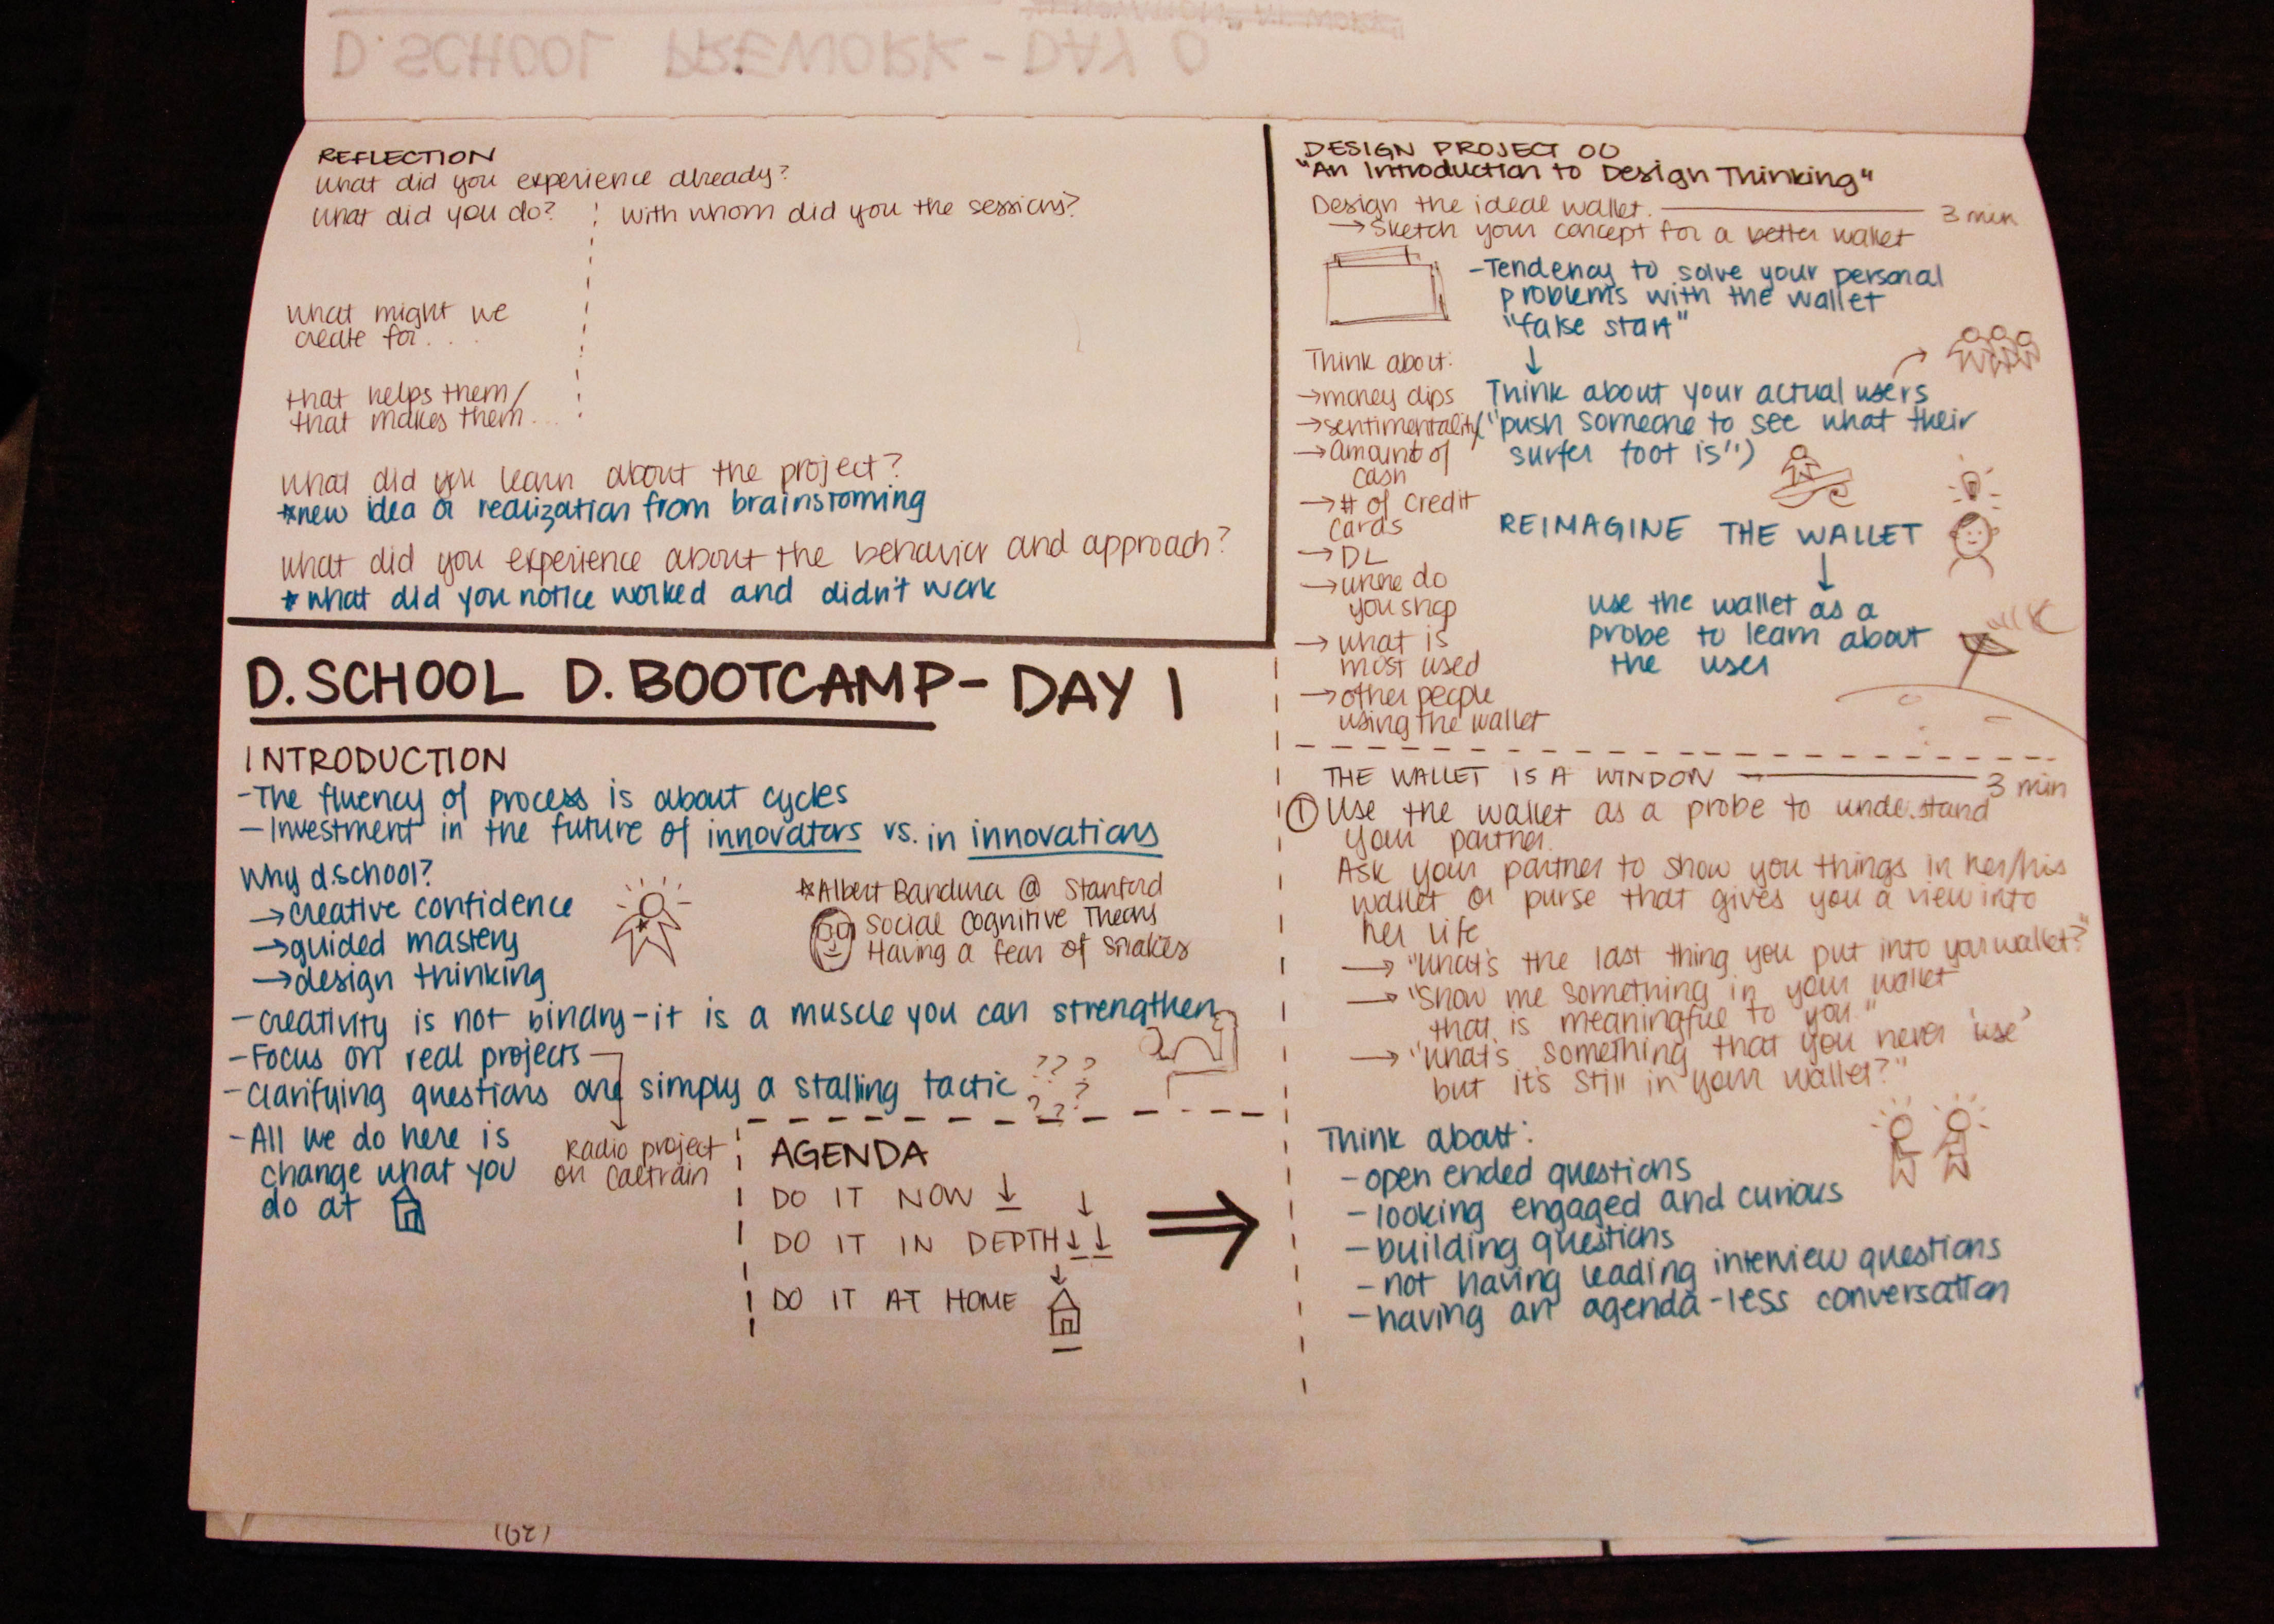 D.SCHOOL PREWORK - DAY 0
REFLECTION
What did you experience already?
What did you do?
with whom did you the sessions?
What might we
create for...
that helps them/
that makes them...
What did you learn about the project?
*new idea or realization from brainstorming
What did you experience about the behavior and approach?
*what did you notice worked and didn't work
D.SCHOOL D.BOOTCAMP - DAY 1
INTRODUCTION
-The fluency of process is about cycles
-Investment in the future of innovators vs. in innovations
Why d.school?
→creative confidence
→guided mastery
→design thinking
*Albert Bandura @ Stanford
Social Cognitive Theory
Having a fear of snakes
-creativity is not binary - it is a muscle you can strengthen
-Focus on real projects
-Clarifying questions are simply a stalling tactic
??? ? ??
-All we do here is
change what you
do at
Radio project
on Caltrain
AGENDA
DO IT NOW ↓
DO IT IN DEPTH ↓↓
DO IT AT HOME
DESIGN PROJECT 00
"An Introduction to Design Thinking"
Design the ideal wallet. 3 min
→Sketch your concept for a better wallet
-Tendency to solve your personal
problems with the wallet
"false start"
↓
Think about your actual users
("push someone to see what their
surfer foot is")
Think about:
→money clips
→sentimentality
→Amount of
cash
→# of credit
cards
→DL
→where do
you shop
→what is
most used
→other people
using the wallet
REIMAGINE THE WALLET
↓
use the wallet as a
probe to learn about
the user
THE WALLET IS A WINDOW 3 min
① Use the wallet as a probe to understand
your partner.
Ask your partner to show you things in her/his
wallet or purse that gives you a view into
her life
→"What's the last thing you put into your wallet?"
→"Show me something in your wallet
that is meaningful to you."
→"What's something that you never 'use'
but it's still in your wallet?"
Think about:
-open ended questions
-looking engaged and curious
-building questions
-not having leading interview questions
-having an agenda-less conversation